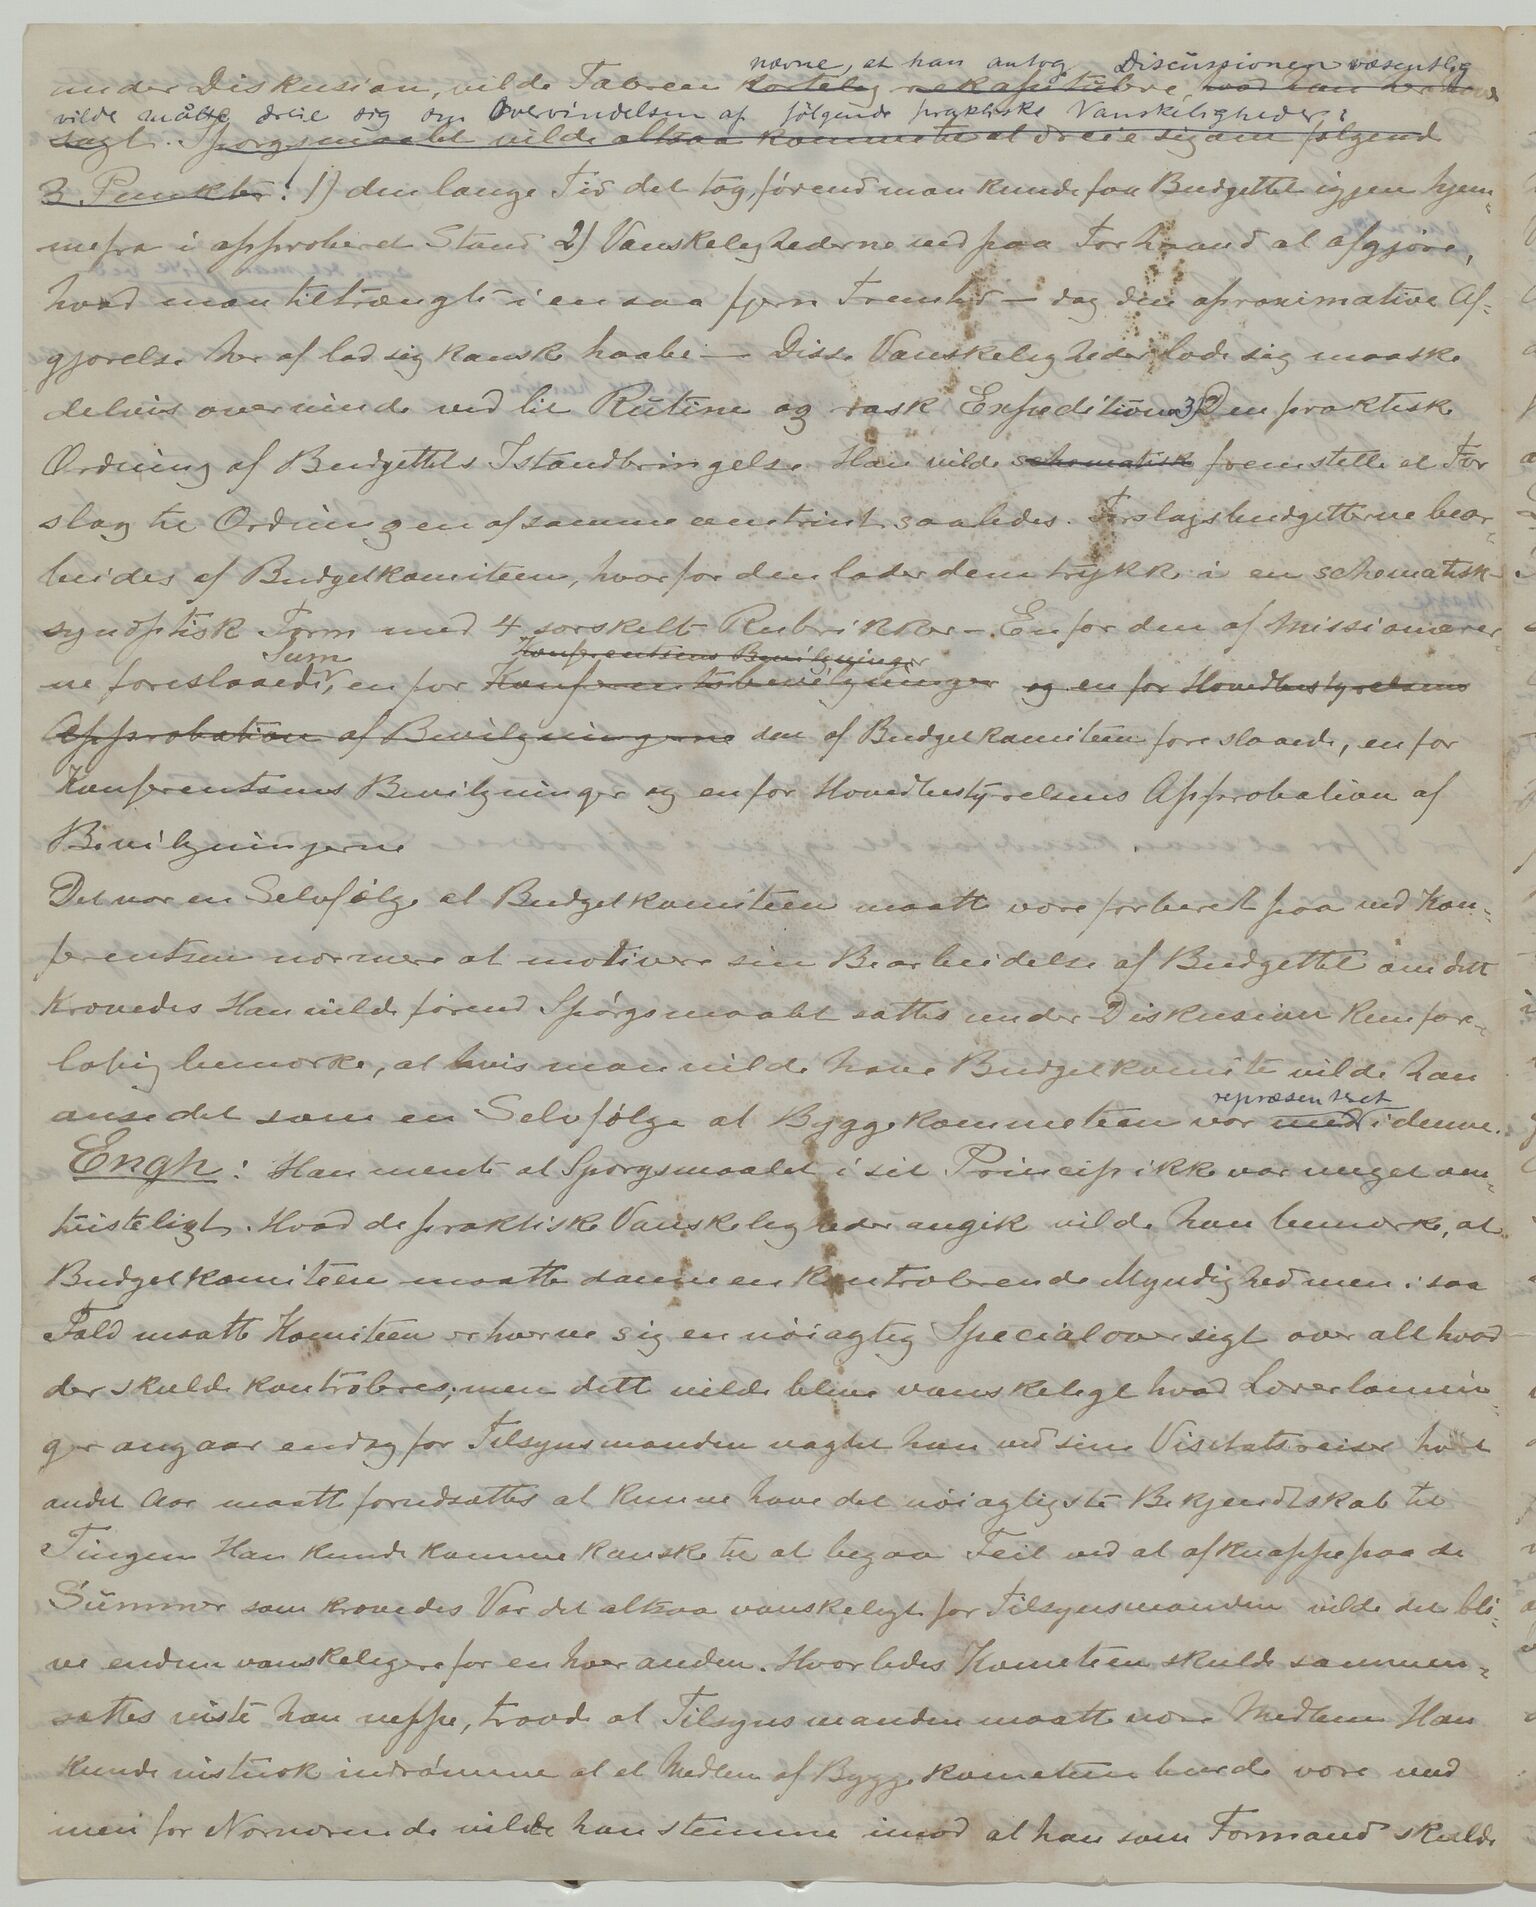 nævne, at han antog Discussionen væsentlig
under Diskusion, vilde Taleren kortelig rekapitulere, hvad han havde
vilde måtte dreie sig om Overvindelsen af følgende praktiske Vanskeligheder:
sagt. Spørgsmaalet vilde altsaa komme til at dreie sig om følgend
3 Punkter: 1) den lange Tid det tog, førend man kunde faa Budgettet igjen hjem-
mefra i approberet Stand 2) Vanskelighederne ved paa Forhaand at afgjøre,
hvad man tiltrængte i en saa fjern Fremtid – dog den aproximative Af-
gjørelse her af lod sig kanske haabe – Disse Vanskeligheder lode sig maaske
delvis overvinde ved lit Rutine og rask Expedition 3) Den praktiske
Ordning af Budgettets Istandbringelse. Han vilde schematisk fremstille et For
slag til Ordningen af samme omtrint saaledes. Forslagsbudgetterne bear-
beides af Budgetkomiteen, hvorfor den lader dem trykke i en schematisk-
synoptisk Form med 4 sorskelt Rubrikker – En for den af Missionærer
Sum Konferentsens Bevilgninger
ne foreslaaede, en for Konferentsbevilgninger og en for Hovedbestyrelsens
Approbation af Bevilgningerne den af Budgetkomiteen foreslaaede, en for
Konferentsens Bevilgninger og en for Hovedbestyrelsens Approbation af
Bevilgningerne
Det var en Selvfølge at Budgetkomiteen maatte være forberedt paa ved Kon-
ferentsen nærmere at motivere sin Bearbeidelse af Budgettet om dett
krævedes Han vilde førend Spørgsmaalet sattes under Diskusion kun for-
løbig bemærke, at hvis man vilde have Budgetkomite vilde han
anse det som en Selvfølge at Byggekommeteen var med i denne.
repræsenteret
Engh: Han mente at Spørgsmaalet i sit Princip ikke var meget om-
tvisteligt. Hvad de praktiske Vanskeligheder angik vilde han bemærke, at
Budgetkomiteen maatte danne en kontrolerende Myndighed men i saa
Fald maatte Komiteen erhverve sig en nøiagtig Specialoversigt over alt hvad
der skulde kontroleres; men dett vilde blive vanskeligt hvad Lærerlønnin-
ger angaar endog for Tilsynsmanden uagtet han ved sine Visitatsreiser hvert
andet Aar maatt forudsættes at kunne have det nøiagtigste Bekjendtskab til
Tingen Han kunde komme kanske til at begaa Feil ved at afknappe paa de
Summer som krævedes Var det altsaa vanskeligt for Tilsynsmanden vilde det bli-
ve endnu vanskeligere for en hver anden. Hvorledes Kometeen skulde sammen-
sættes viste han neppe, troede at Tilsynsmanden maatt være Medlem Han
kunde vistnok indrømme at et Medlem af Byggekometeen burde være med
men for Nærværende vilde han stemme imod at han som Formand skulde